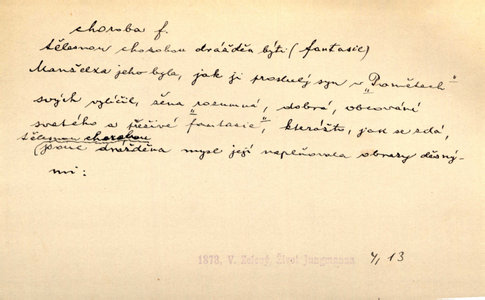 choroba f.
tělesnou chorobou drážděn býti (fantasie)
Manželka jeho byla, jak ji proslulý syn v „Pamětech"
svých vylíčil, žena rozumná, dobrá, obcování
svatého a živé „fantasie", kterážto, jak se zdá,
tělesnou chorobou
jsouc drážděna mysl její naplňovala obrazy děsný-
mi:
1873, V. Zelený, Život Jungmanna 4, 13